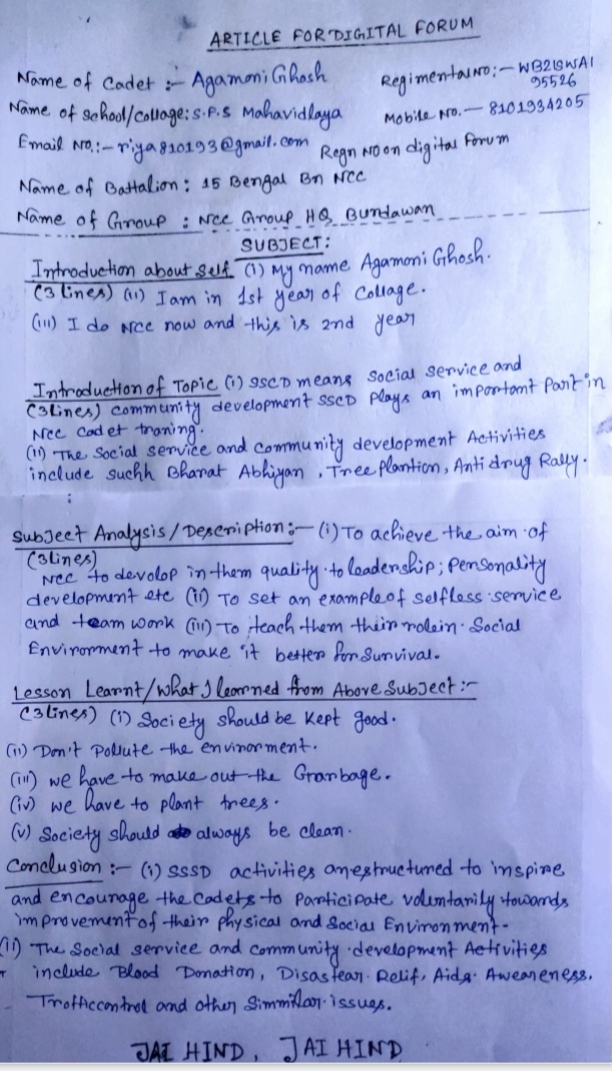 ARTICLE FOR DIGITAL FORUM
Name of Cadet :- Agamoni Ghosh
Regimental No:- WB21SWA1
95526
Name of School/Collage: S.P.S Mahavidlaya
Mobile No.- 8101934205
Email No.:- riya810193@gmail.com
Regn No on digital Forum
Name of Battalion : 15 Bengal Bn NCC
Name of Group : NCC Group HQ, Burdawan
SUBJECT:
Introduction about Self (i) My name Agamoni Ghosh.
(3 lines) (ii) I am in 1st year of Collage.
(iii) I do NCC now and this is 2nd year
Introduction of Topic (i) SSCD means Social Service and
(3 Lines) community development SSCD Plays an important Part in
NCC Cadet traning.
(ii) The Social service and community development Activities
include suchh Bharat Abhiyan , Tree plantion, Anti drug Rally.
:
Subject Analysis / Description :- (i) To achieve the aim of
(3 lines)
NCC to devolop in them quality to leadership; Personality
development etc (ii) To set an example of selfless service
and team work (iii) To teach them their role in Social
Environment to make it better for Survival.
Lesson Learnt/What I learned from Above Subject :-
(3 lines) (i) Society should be Kept good.
(ii) Don't Pollute the environment.
(iii) we have to make out the Grarbage.
(iv) we have to plant trees.
(v) Society should always be clean.
Conclusion :- (i) SSSD activities are structured to inspire
and encourage the Cadets to Participate voluntarily towards
improvement of their Physical and Social Environment-
(ii) The Social service and community development Activities
include Blood Donation, Disastear Relif, Aids Aweareness,
Trafficcontrol and other Simmilar issues.
JAI HIND, JAI HIND